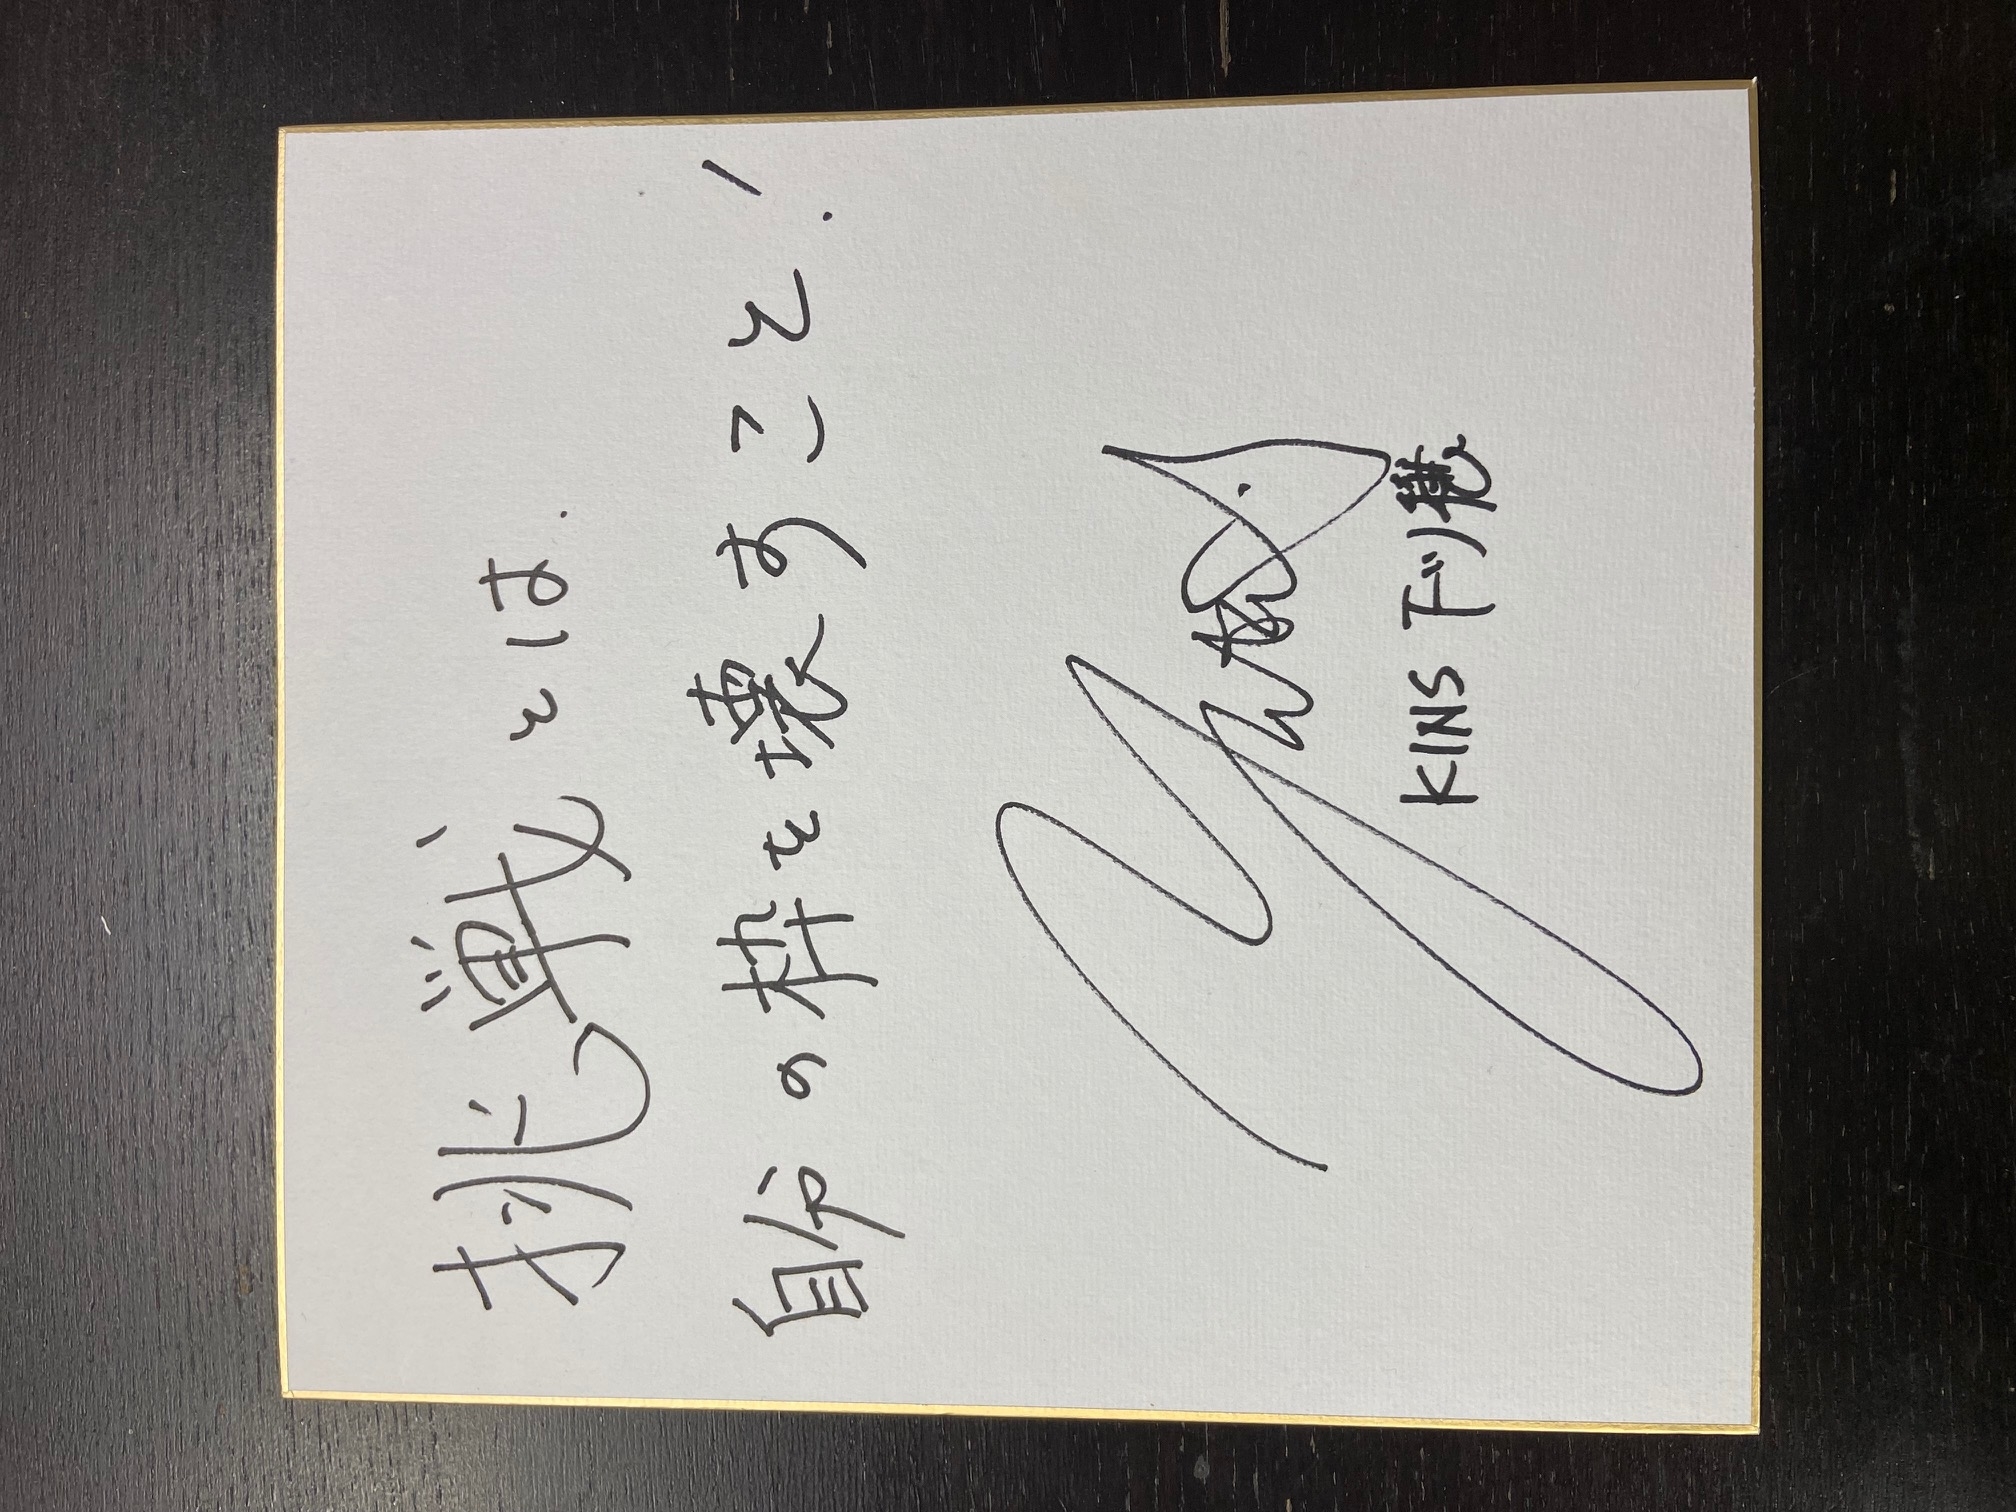 挑戦とは.
自分の枠を壊すこと!
KINS 下川穣